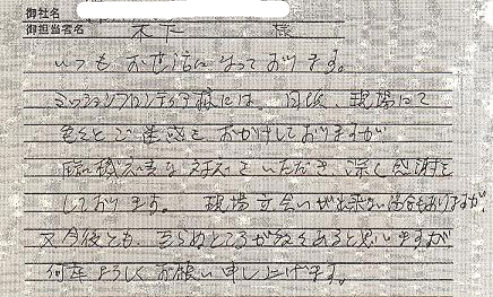 御社名
御担当者名 木下 様
いつもお世話になっております。
ミッションフロンティア様には、日頃、現場にて
色々とご迷惑をおかけしておりますが
臨機応変な対応をいただき、深く感謝を
しております。 現場立会いが出来ない場合もありますが、
又今後とも、至らぬところが数々あると思いますが
何卒よろしくお願い申し上げます。